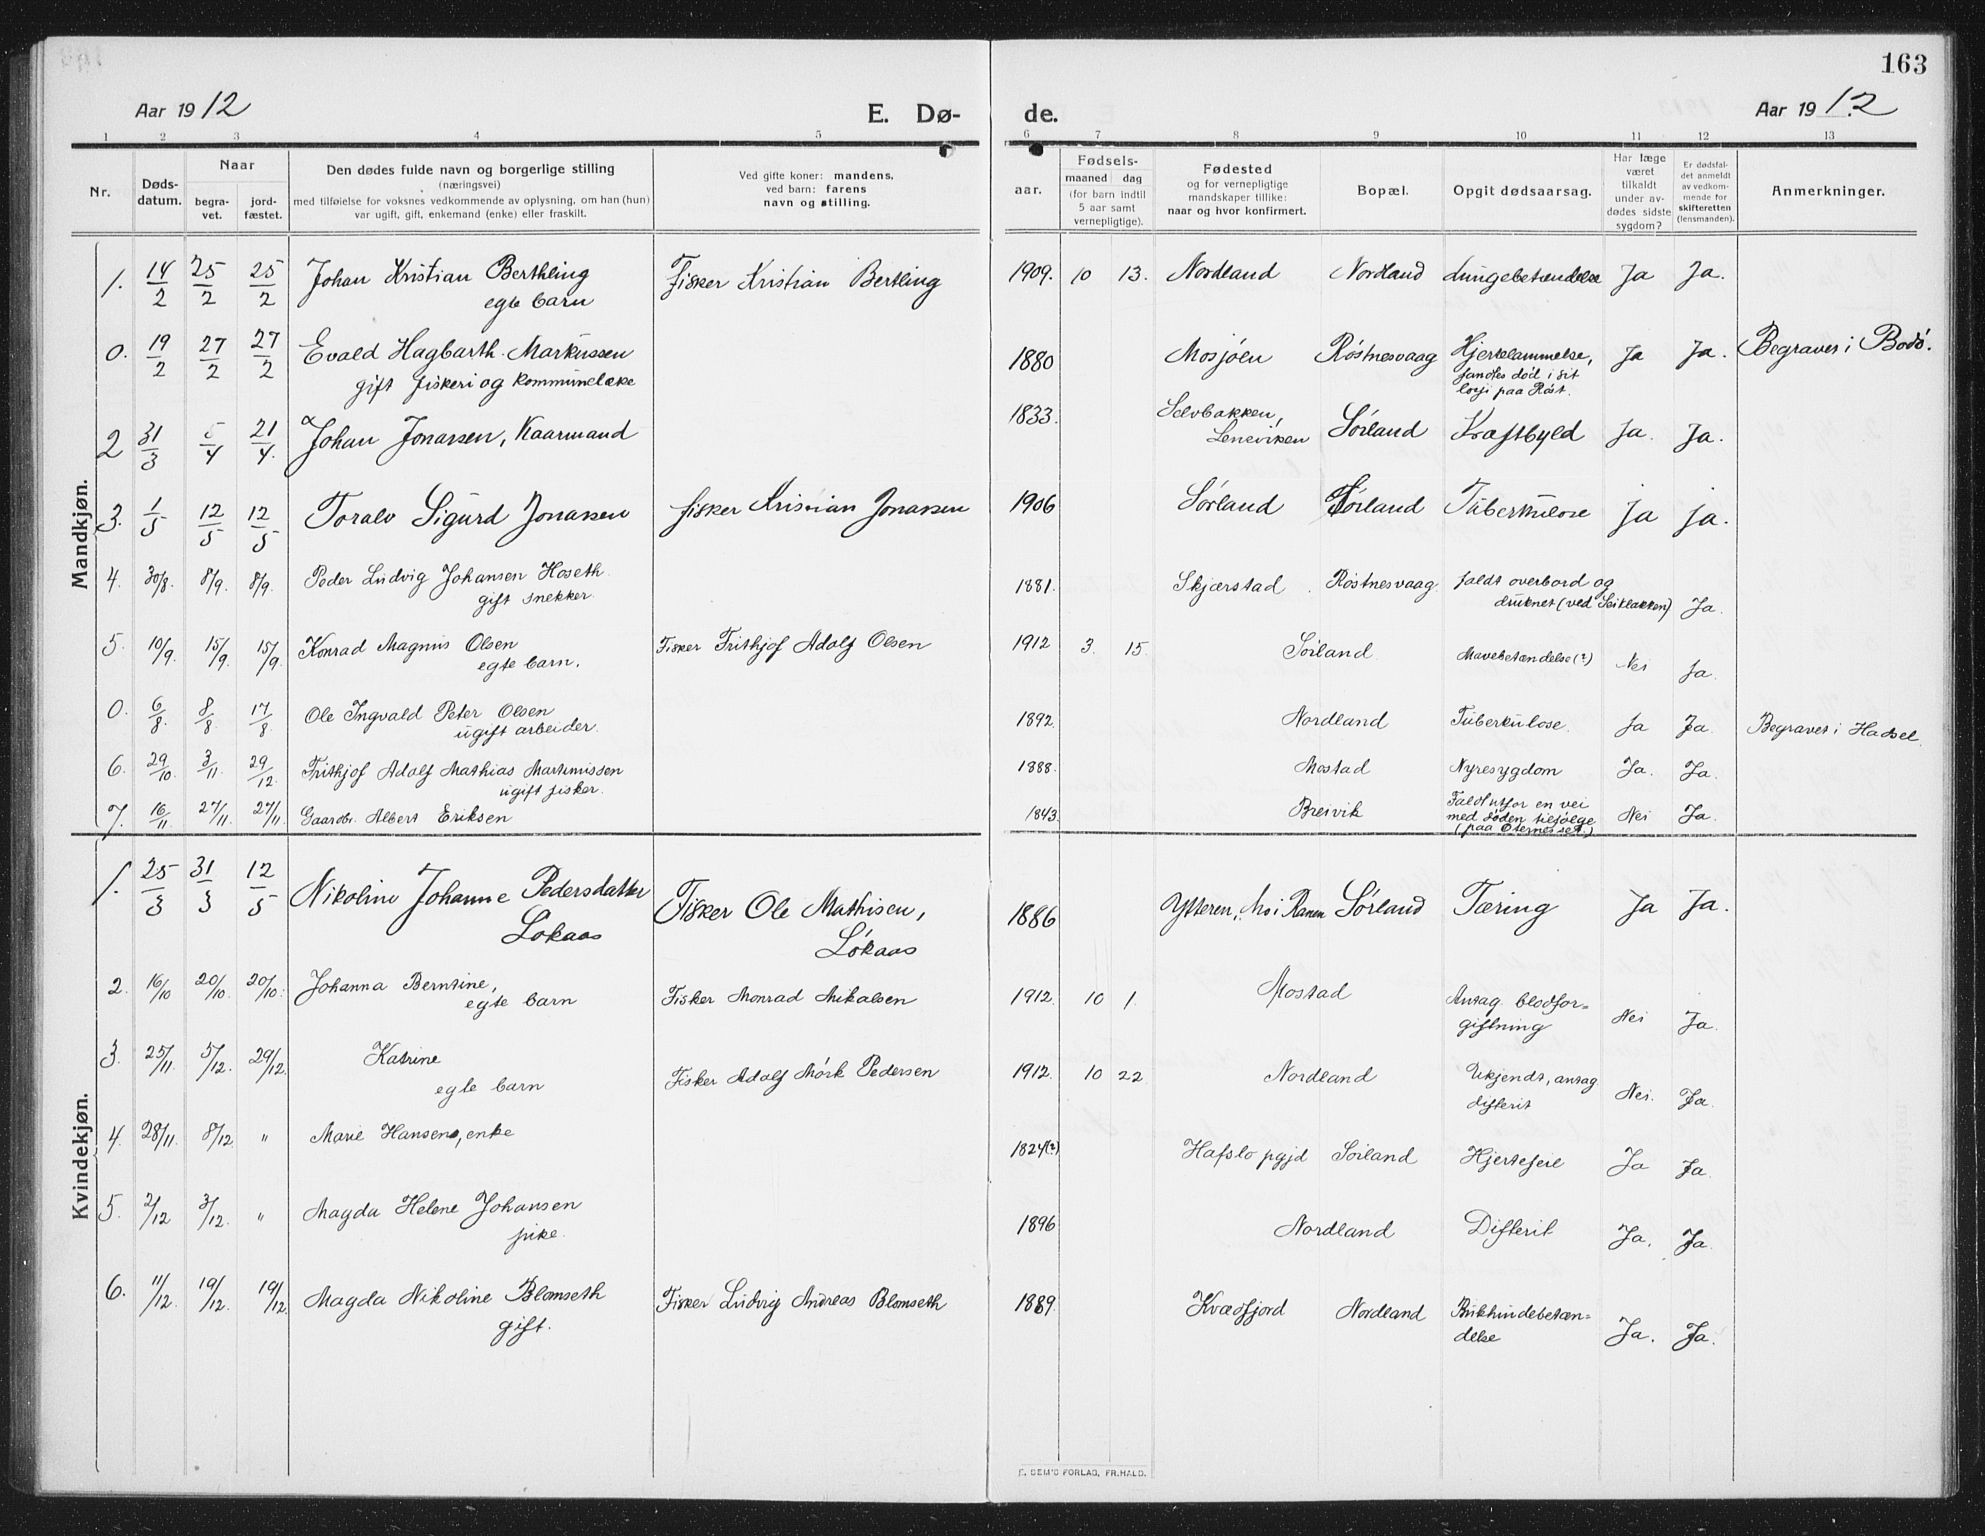 163
Aar 1912
E. Dø-
de.
Aar 1912
1 2 3 4 5 6 7 8 9 10 11 12 13
Nr.
Døds-
datum.
Naar
begra-
vet.
jord-
fæstet.
Den dødes fulde navn og borgerlige stilling
(næringsvei)
med tilføielse for voksnes vedkommende av oplysning, om han (hun)
var ugift, gift, enkemand (enke) eller fraskilt.
Ved gifte koner: mandens,
ved barn: farens
navn og stilling.
aar.
Fødsels-
maaned dag
(for barn indtil
5 aar samt
vernepligtige).
Fødested
og for vernepligtige
mandskaper tillike:
naar og hvor konfirmert.
Bopæl.
Opgit dødsaarsag.
Har læge
været
tilkaldt
under av-
dødes sidste
sygdom?
Er dødsfal-
det anmeldt
av vedkom-
mende for
skifteretten
(lensmanden).
Anmerkninger.
Mandkjøn.
1. 14/2 25/2 25/2 Johan Kristian Berthling Fisker Kristian Bertling 1909. 10 13. Nordland Nordland Lungebetændelse Ja Ja.
egte barn
0. 19/2 27/2 27/2 Evald Hagbarth Markussen 1880 Mosjøen Røstnesvaag Hjertelammelse, Ja Ja. Begravet i Bodø.
gift fiskeri og kommunelæge fandtes død i sit
losji paa Røst.
2 31/3 5/4 21/4. Johan Jonassen, Kaarmand 1833. Selvbakken, Sørland Kræftbyld Ja. Ja.
Lenvikken
3. 1/5 12/5 12/5 Toralv Sigurd Jonassen fisker Kristian Jonassen 1906 Sørland Sørland Tuberkulose ja ja.
4. 30/8. 8/9. 8/9. Peder Ludvig Johansen Hoseth. 1881. Skjærstad Røstnesvaag faldt overbord og
gift snekker. druknet (ved Seiklakken) Ja.
5. 10/9. 15/9. 15/9. Konrad Magnus Olsen Fisker Frithjof Adolf Olsen 1912 3. 15. Sørland Mavebetændelse (?) Nei Ja.
egte barn.
0. 6/8. 8/8 17/8 Ole Ingvald Peter Olsen 1892. Nordland Tuberkulose. Ja Ja. Begravet i Hadsel.
ugift arbeider.
6. 29/10 3/11. 29/12. Frithjof Adolf Mathias Martinussen 1888. Mostad Nyresygdom Ja. Ja.
ugift fisker.
7. 16/11. 27/11. 27/11. Gaardbr. Albert Eriksen 1843. Breivik Faldt utfor en vei Nei Ja.
med døden tilfølge
(paa Øternesset.)
Kvindekjøn.
1. 25/3 31/3 12/5 Nikoline Johanne Pedersdatter Fisker Ole Mathisen, 1886 Ytteren, Mo i Ranen Sørland Tæring Ja Ja.
Løkaas Løkaas
2. 16/10 20/10. 20/10. Johanna Berntine, Fisker Monrad Mikalsen 1912. 10 1. Mostad Antag. blodfor= Nei Ja.
egte barn giftning
3. 25/11. 5/12. 29/12. Katrine Fisker Adolf Mørk Pedersen 1912. 10 22 Nordland Ukjendt, antag Nei. Ja.
egte barn difterit
4. 28/11. 8/12. " Marie Hansen, enke 1824(?) Hafslo pgjd Sørland Hjertefeil Ja Ja.
5. 2/12 3/12. " Magda Helene Johansen 1896 Nordland Difterit Ja. Ja.
pike.
6. 11/12. 19/12. 19/12. Magda Nikoline Blomseth Fisker Ludvig Andreas Blomseth 1889. Kvædfjord Nordland Bukhindebetæn= Ja. Ja.
gift. delse
E. SEM'S FORLAG, FR.HALD.